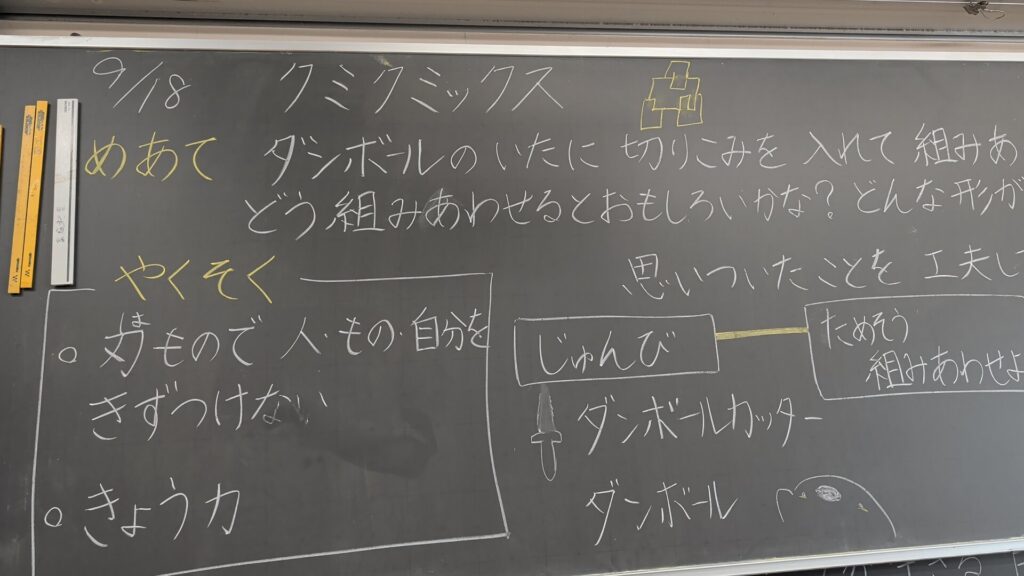 9/18 クミクミックス
めあて ダンボールのいたに 切りこみを 入れて 組みあ
どう組みあわせるとおもしろいかな？どんな形が
思いついたことを 工夫して
やくそく
○ 刃ものので 人・もの・自分を
きずつけない
○ きょう力
じゅんび
ダンボールカッター
ダンボール
ためそう
組みあわせよ